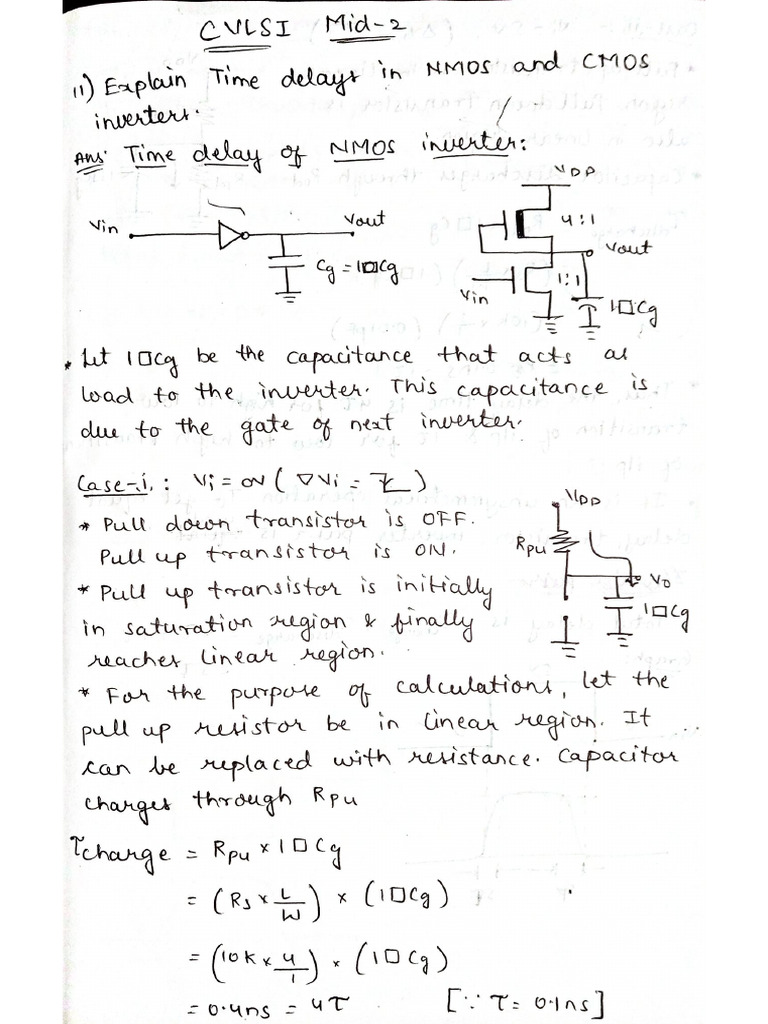 CVLSI Mid-2
11) Explain Time delays in NMOS and CMOS
inverters.
Ans: Time delay of NMOS inverter:
VDD
4:1
Vin
Vout
Vout
Cg = 1□Cg
1:1
Vin
1□Cg
* Let 1□Cg be the capacitance that acts as
load to the inverter. This capacitance is
due to the gate of next inverter.
Case-i: Vi = 0V (∇Vi =
)
* Pull down transistor is OFF.
Pull up transistor is ON.
VDD
RPU
VO
1□Cg
* Pull up transistor is initially
in saturation region & finally
reaches linear region.
* For the purpose of calculations, let the
pull up resistor be in linear region. It
can be replaced with resistance. Capacitor
charges through RPU
τcharge = RPU × 1□Cg
= (Rs × L/W) × (1□Cg)
= (10K × 4/1) × (1□Cg)
= 0.4ns = 4τ [∵ τ = 0.1ns]